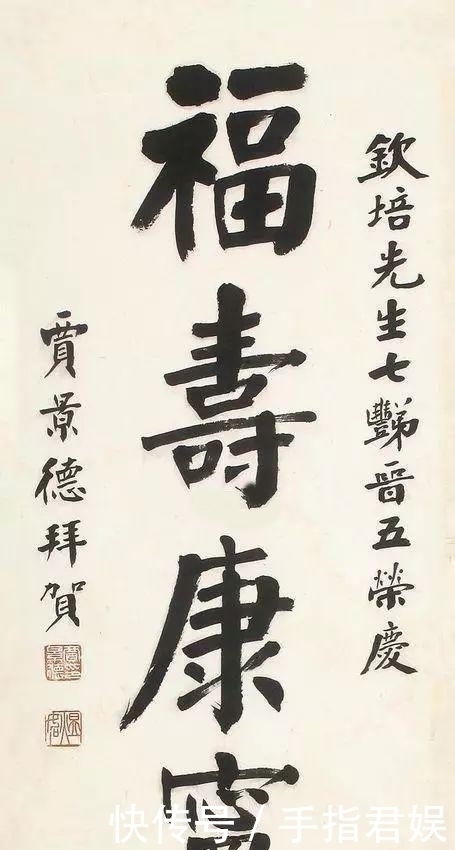 欽培先生七豑晉五榮慶
福壽康寧
賈景德拜賀
快传号 / 手指君娱